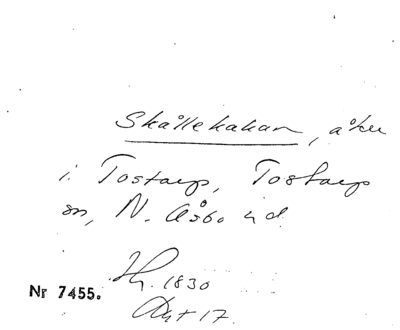 Skällekakan, åker
i Tostarp, Tostarp
sn, N. Åsbo hd.
Hy. 1830
Akt 17.
Nr 7455.